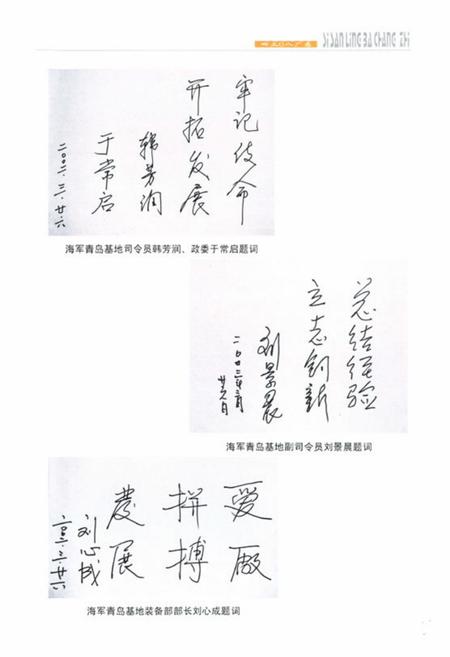 四三〇八厂志
SI SAN LING BA CHANG ZHI
牢记使命
开拓发展
韩芳润
于常启
二〇〇二.三.廿六
海军青岛基地司令员韩芳润、政委于常启题词
总结经验
立志创新
刘景晨
海军青岛基地副司令员刘景晨题词
爱厂
拼搏
发展
刘心成
海军青岛基地装备部部长刘心成题词